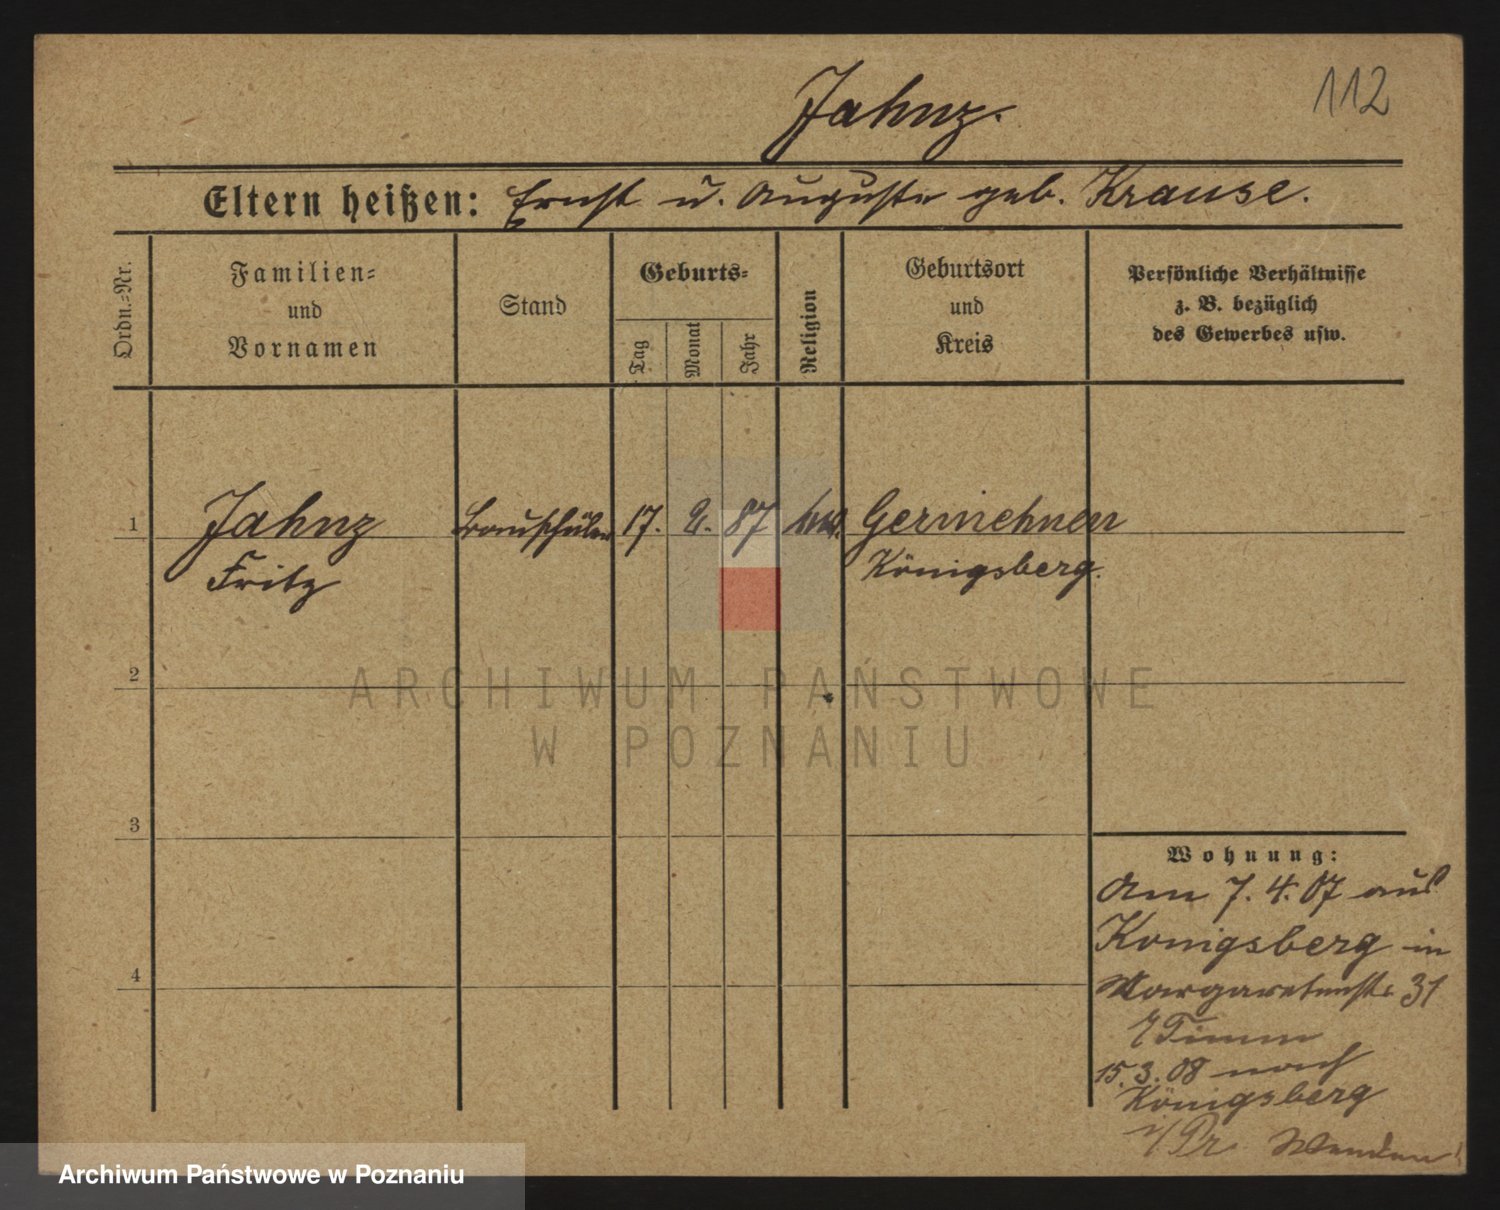 Jahnz.
112
Eltern heißen: Ernst u. Auguste geb. Krause.
Ordn.-Nr.
Familien-
und
Vornamen
Stand
Geburts-
Tag
Monat
Jahr
Religion
Geburtsort
und
Kreis
Persönliche Verhältnisse
z. B. bezüglich
des Gewerbes usw.
1
Jahnz
Fritz
Bauschüler
17.
2.
87
Germehnen
Königsberg.
2
ARCHIWUM PAŃSTWOWE
W POZNANIU
3
Wohnung:
Am 7. 4. 07 aus
Königsberg in
Margaretenstr 31
Timm
4
15. 3. 08 nach
Königsberg
i/Pr Wenden!
Archiwum Państwowe w Poznaniu